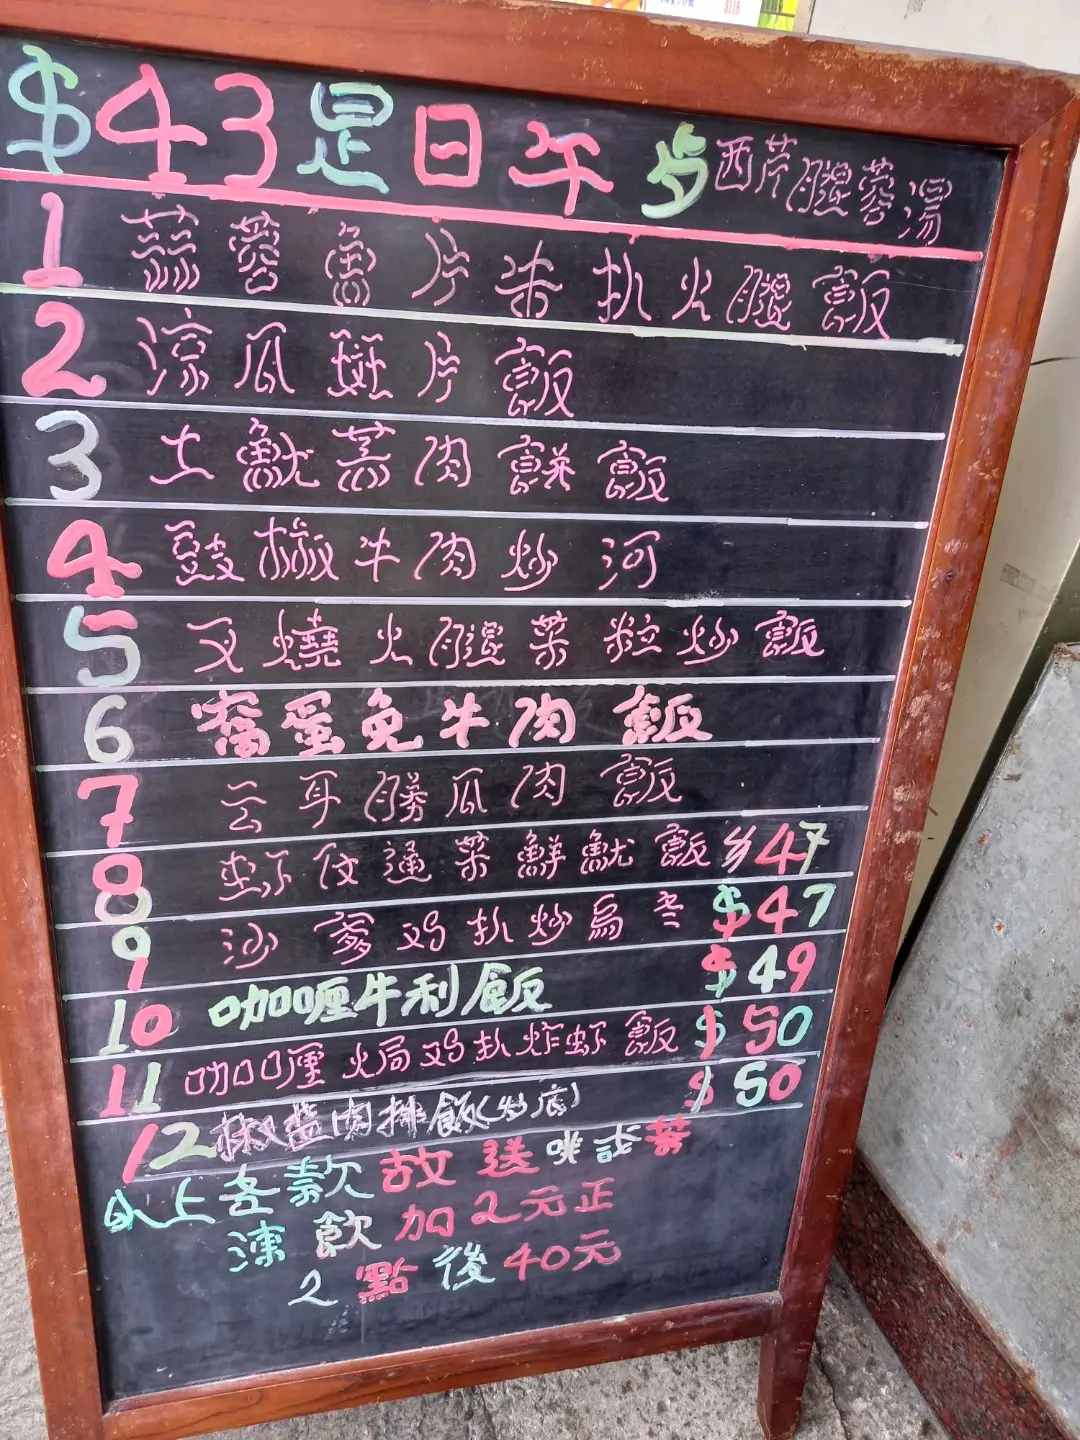 $119
$43是日午歺 西芹腿蓉湯
1 蒜蓉魚片牛扒火腿飯
2 涼瓜斑片飯
3 土魷蒸肉餅飯
4 豉椒牛肉炒河
5 叉燒火腿菜粒炒飯
6 窩蛋免牛肉飯
7 云耳勝瓜肉飯
8 虾仁通菜鮮魷飯 $47
9 沙爹鸡扒炒烏冬 $47
10 咖喱牛利飯 $49
11 咖喱焗鸡扒炸虾飯 $50
12 椒盐肉排飯(炒底) $50
以上各款 送啡或茶
凍飲加2元正
2點後40元